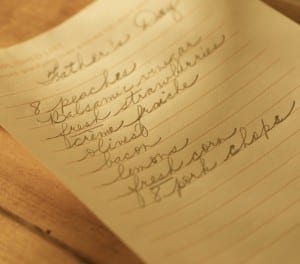 Father's Day
8 peaches
Balsamic vinegar
fresh strawberries
crème fraîche
olives
bacon
lemons
fresh corn
8 pork chops